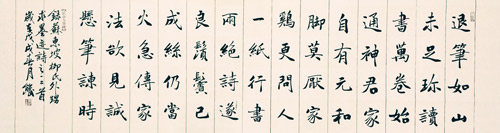 退筆如山
未足珍讀
書萬卷始
通神君家
自有元和
脚莫厭家
鷄更問人
一紙行書
兩絕詩遂
良鬚鬢已
成絲仍當
火急傳家
法欲見誠
懸筆諫時
錄蘇東坡柳氏外甥
求筆迹詩之二首